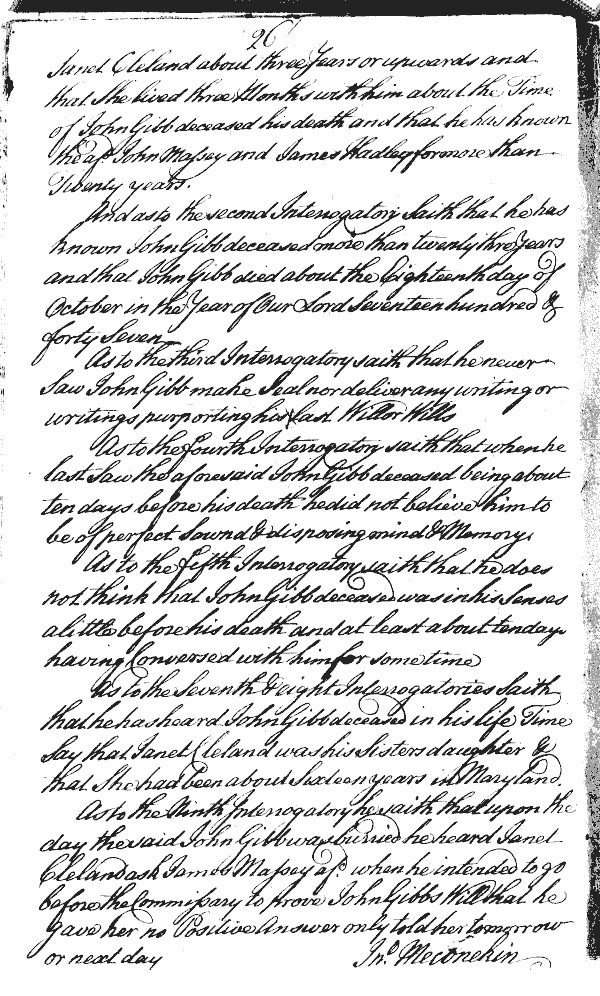 26
Janet Cleland about three Years or upwards and
that She lived three Months with him about the Time
of John Gibb deceased his death and that he has known
the afd. John Massey and James Hadley for more than
Twenty years.
And as to the second Interrogatory Saith that he has
known John Gibb deceased more than twenty three Years
and that John Gibb died about the Eighteenth day of
October in the Year of Our Lord Seventeen hundred &
forty Seven
As to the third Interrogatory saith that he never
Saw John Gibb make Seal nor deliver any writing or
writings purporting his last Will or Wills
As to the fourth Interrogatory saith that when he
last Saw the aforesaid John Gibb deceased being about
ten days before his death he did not believe him to
be of perfect Sound & disposing mind & Memory.
As to the fifth Interrogatory saith that he does
not think that John Gibb deceased was in his Senses
a little before his death and at least about ten days
having Conversed with him for some time
As to the Seventh & eight Interrogatories Saith
that he has heard John Gibb deceased in his life Time
Say that Janet Cleland was his Sisters daughter &
that She had been about Sixteen years in Maryland.
As to the Ninth Interrogatory he saith that upon the
day the said John Gibb was burried he heard Janet
Cleland ask James Massey afd. when he intended to go
before the Commissary to prove John Gibbs Will that he
gave her no Positive Answer only told her tomorrow
or next day Jno. Meconekin